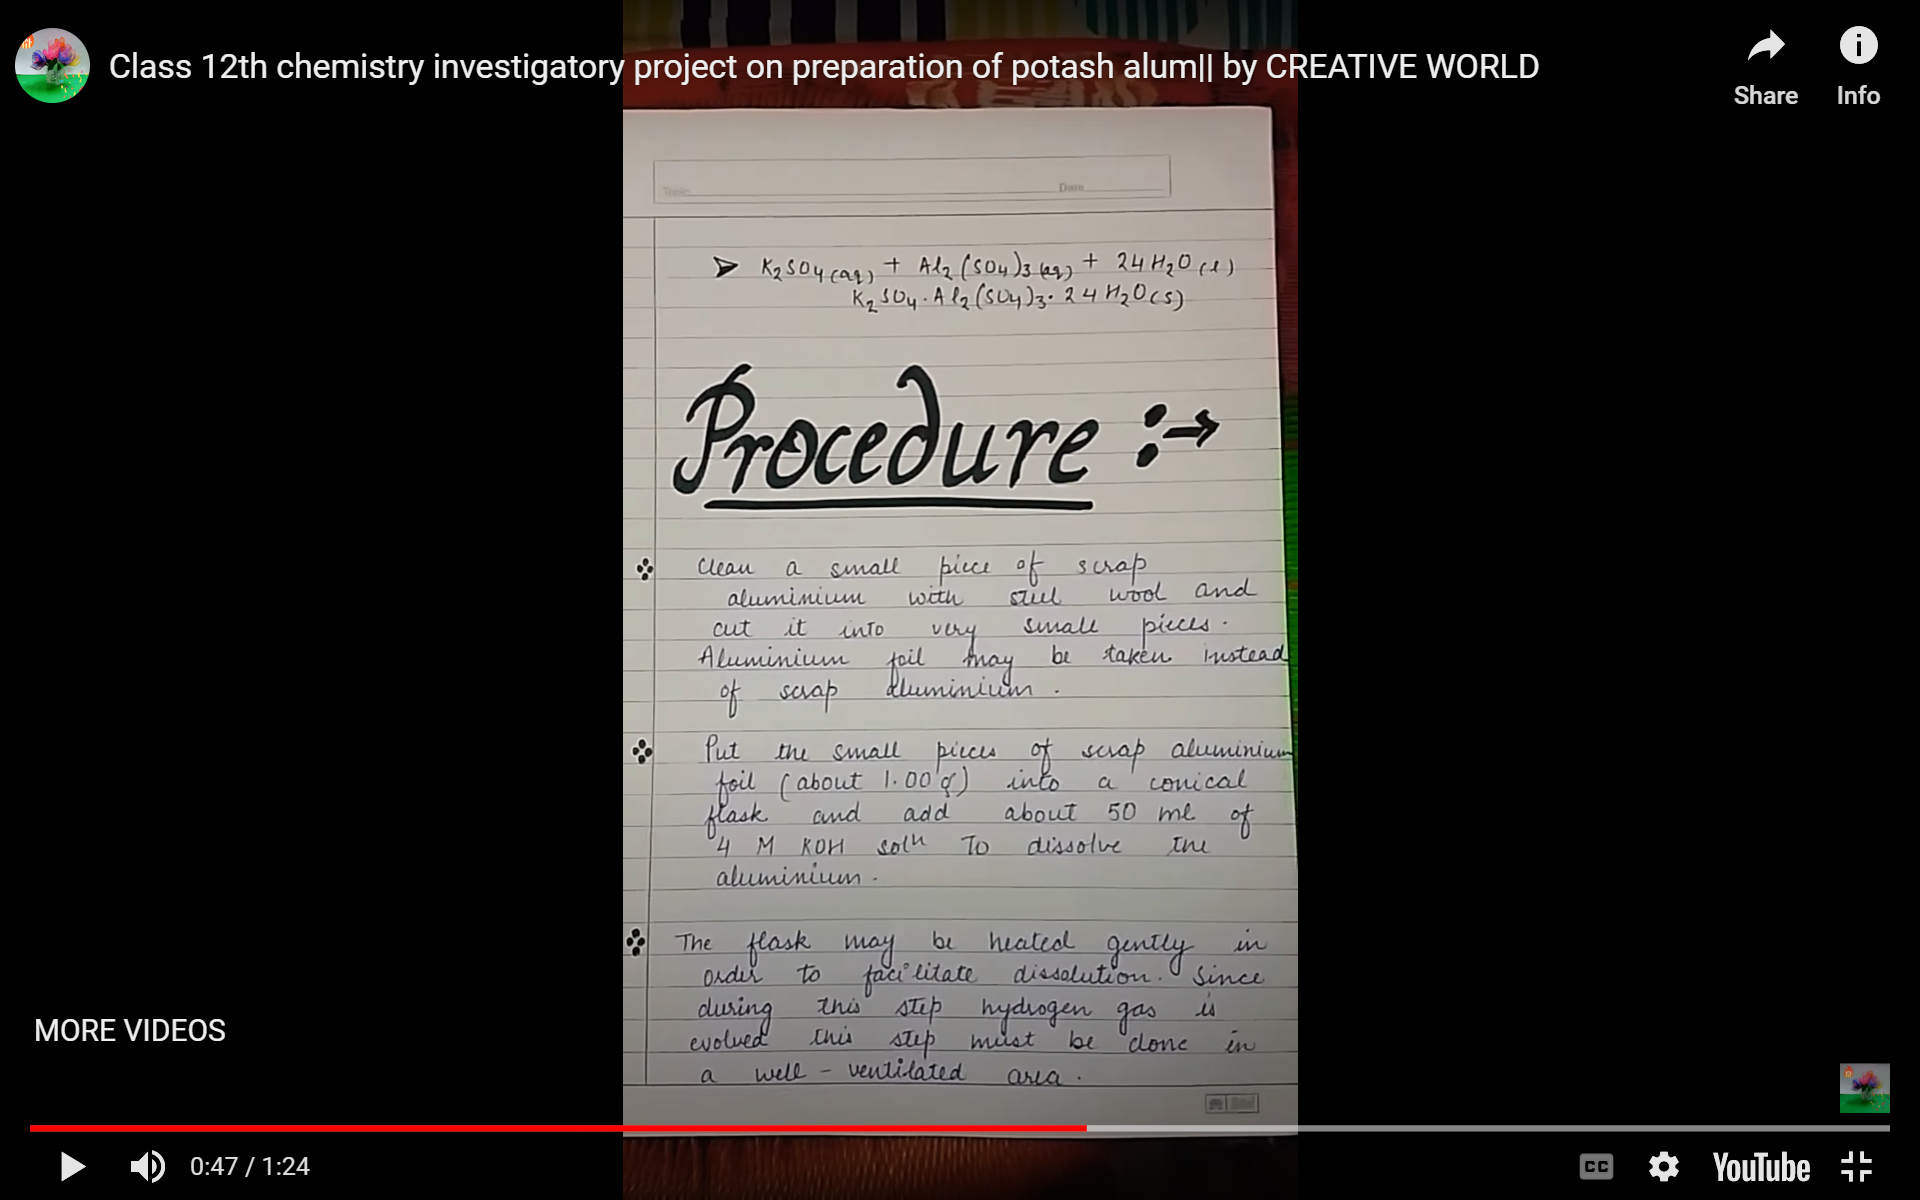 Class 12th chemistry investigatory project on preparation of potash alum|| by CREATIVE WORLD
Share
Info
Topic
Date
➤ K₂SO₄(aq) + Al₂(SO₄)₃(aq) + 24H₂O(l)
K₂SO₄·Al₂(SO₄)₃·24H₂O(s)
Procedure :→
Clean a small piece of scrap
aluminium with steel wool and
cut it into very small pieces.
Aluminium foil may be taken instead
of scrap aluminium.
Put the small pieces of scrap aluminium
foil (about 1.00g) into a conical
flask and add about 50 ml of
4 M KOH solⁿ To dissolve the
aluminium.
The flask may be heated gently in
order to facilitate dissolution. Since
during this step hydrogen gas is
evolved this step must be done in
a well-ventilated area.
MORE VIDEOS
0:47 / 1:24
CC
YouTube